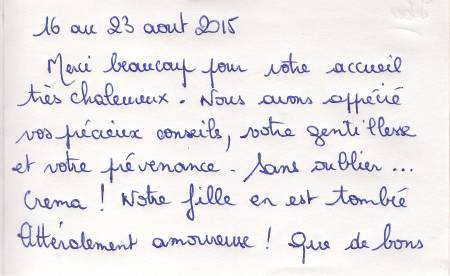 16 au 23 aout 2015
Merci beaucoup pour votre accueil
très chaleureux. Nous avons apprécié
vos précieux conseils, votre gentillesse
et votre prévenance. Sans oublier ...
Crema ! Notre fille en est tombée
littéralement amoureuse ! Que de bons